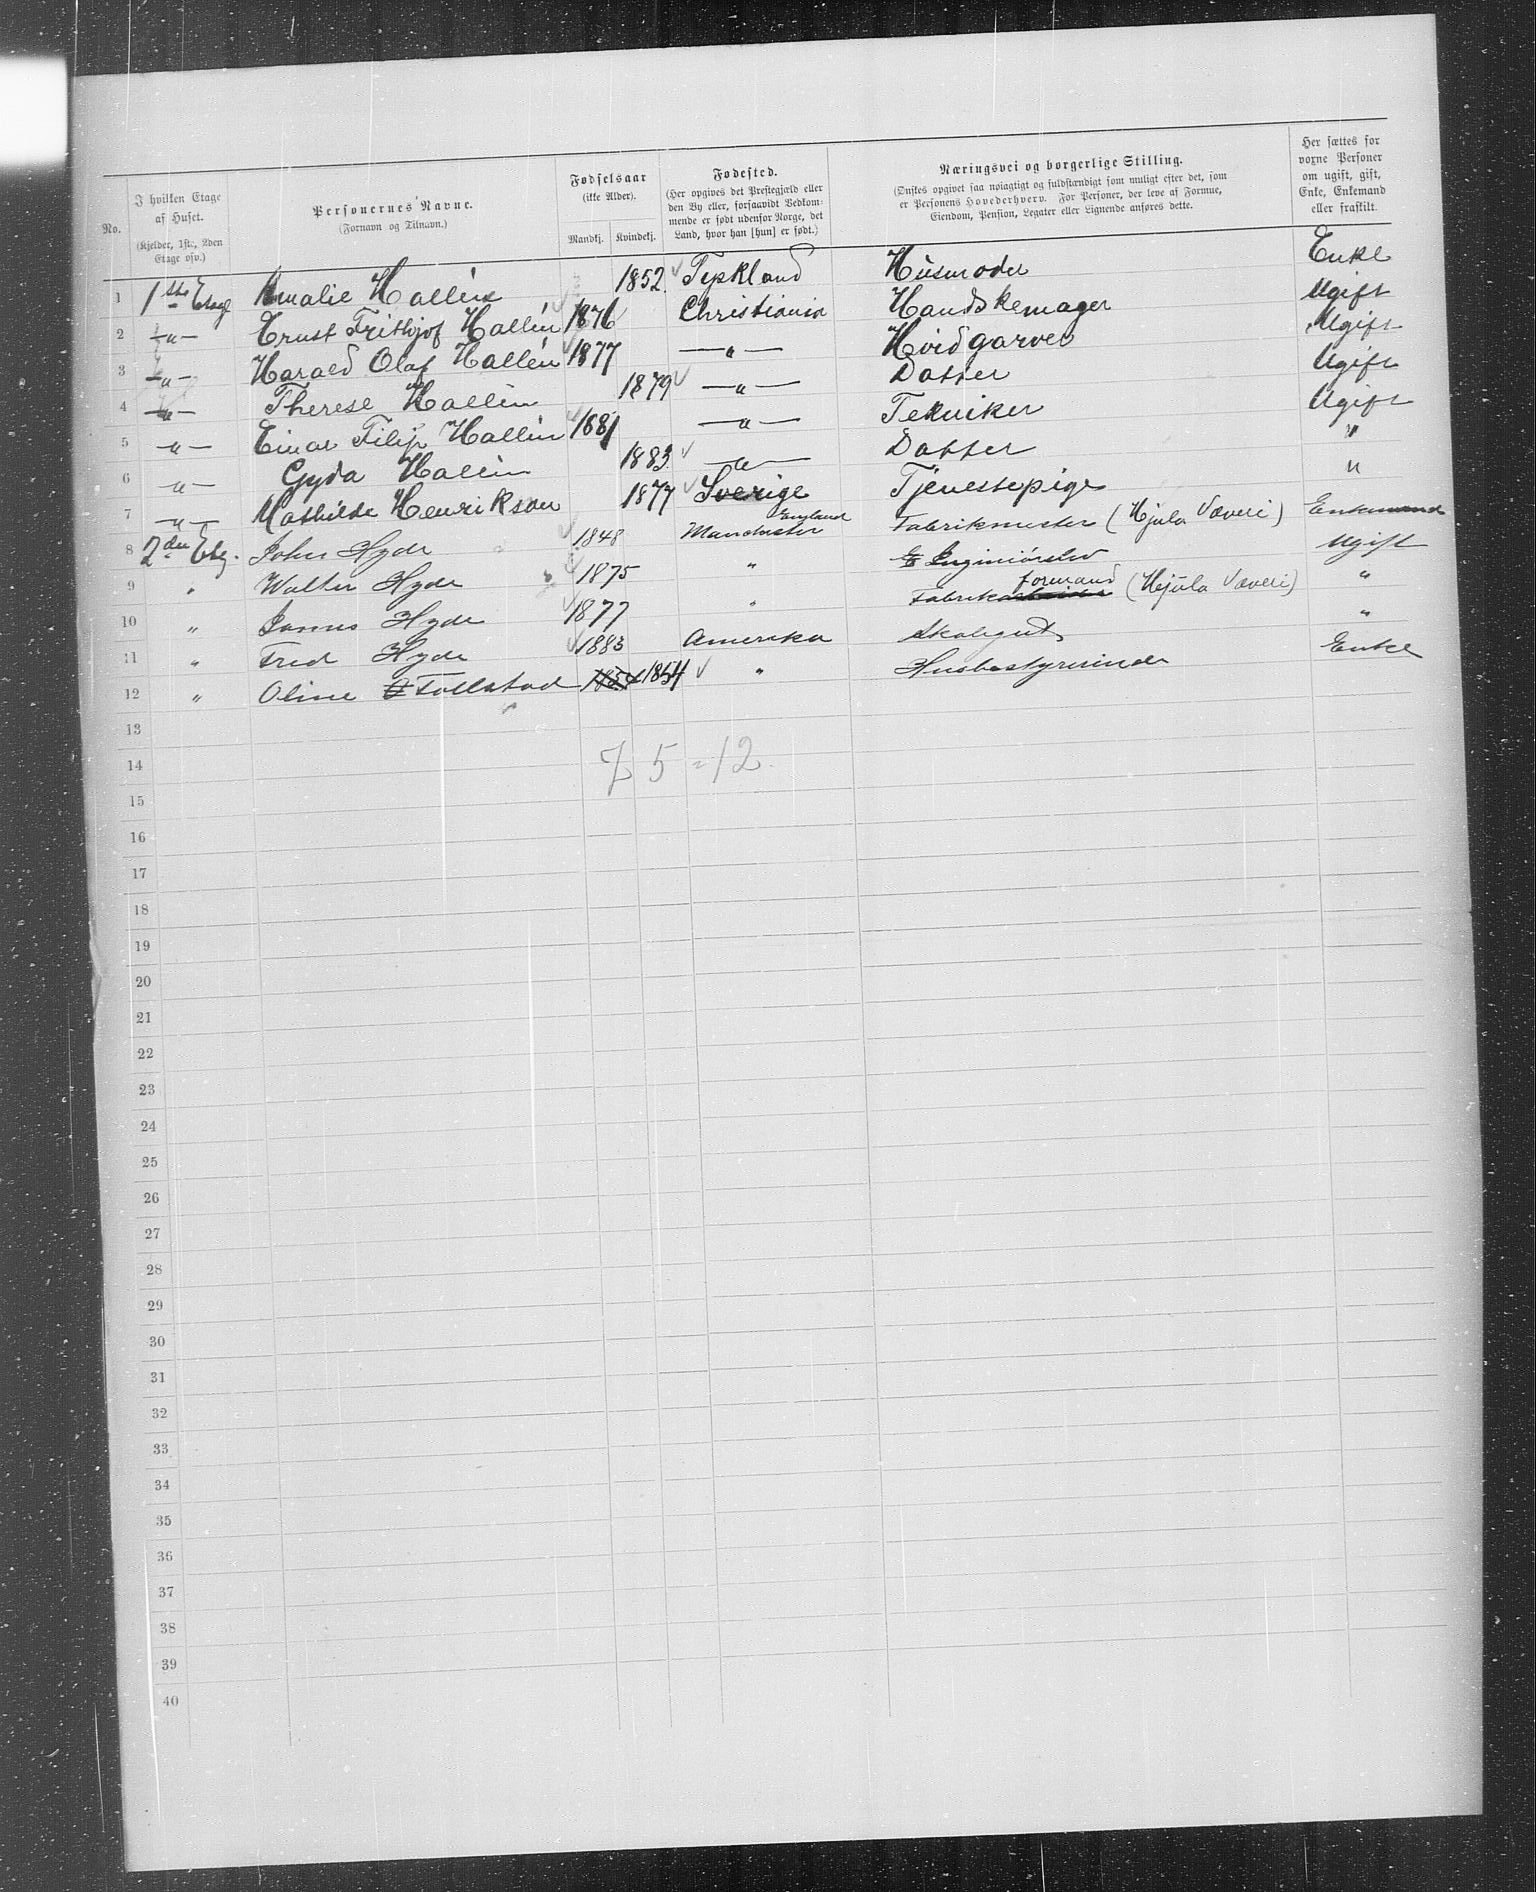 No. | I hvilken Etage af Huset. (Kjelder, 1ste, 2den Etage osv.) | Personernes Navne. (Fornavn og Tilnavn.) | Fødselsaar (ikke Alder). Mandkj. Kvindekj. | Fødested. (Her opgives det Præstegjæld eller den By eller, forsaavidt Vedkommende er født udenfor Norge, det Land, hvor han [hun] er født.) | Næringsvei og borgerlige Stilling. (Ønskes opgivet saa nøiagtigt og fuldstændigt som muligt efter det, som er Personens Hovederhverv. For Personer, der leve af Formue, Eiendom, Pension, Legater eller Lignende anføres dette.) | Her sættes for voxne Personer om ugift, gift, Enke, Enkemand eller fraskilt.
1 1ste Etage Amalie Hallén 1852 Tyskland Husmoder Enke
2 —"— Ernst Frithjof Hallén 1876 Christiania Handskemager Ugift
3 —"— Harald Olaf Hallén 1877 —"— Hvidgarver Ugift
4 —"— Therese Hallén 1879 —"— Datter Ugift
5 —"— Einar Filip Hallén 1881 —"— Tekniker Ugift
6 —"— Gyda Hallén 1883 —"— Datter "
7 —"— Mathilde Henrikson 1877 Sverige Tjenestepige "
8 2den Etg. John Hyde 1848 Manchester England Fabrikmester (Hjula Væveri) Enkemand
9 " Walter Hyde 1875 " Inginiørelev Ugift
10 " James Hyde 1877 " Fabrikformand (Hjula Væveri) "
11 " Fred Hyde 1883 Amerika Skolegut "
12 " Oline Follstad 1854 1854 " Husbestyrerinde Enke
13
14 7 5 = 12
15
16
17
18
19
20
21
22
23
24
25
26
27
28
29
30
31
32
33
34
35
36
37
38
39
40